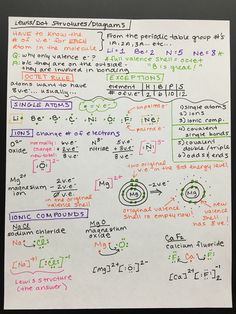 Lewis/Dot Structures/Diagrams
HAVE to know the
# of v.e- for each
atom in the molecule
From the periodic table group #'s
1A, 2A, 3A... etc...
Li=1 Be=2 N=5 Ne=8
Q: why only valence e-?
A: b/c they are on the outside &
they are involved in bonding
A full valence shell = octet
"8 is great"
OCTET RULE
atoms want to have
8 v.e-... usually...
EXCEPTIONS
element H B P S
# of v.e- 2 6 10 12
SINGLE ATOMS
Li Be B C N O F Ne
IONS
change # of electrons
O2-
oxide
normally: 6v.e-
change: +2v.e-
new total: 8v.e-
N3-
nitride
5v.e-
+3v.e-
8v.e-
① single atoms
② ions
③ ionic comp.
④ covalent
single bonds
⑤ covalent
double/triple
⑥ odds & ends
Mg2+
magnesium
ion
2v.e-
-2v.e-
0v.e-
[Mg]2+
original valence
shell is empty now!
new
valence shell
has 8 v.e-!
IONIC COMPOUNDS
NaCl
sodium chloride
MgO
magnesium
oxide
CaF2
calcium fluoride
Na Cl
Mg O
F Ca F
[Na]+ [Cl]-
[Mg]2+ [O]2-
[Ca]2+ [F]-2
Lewis structure
(the answer)